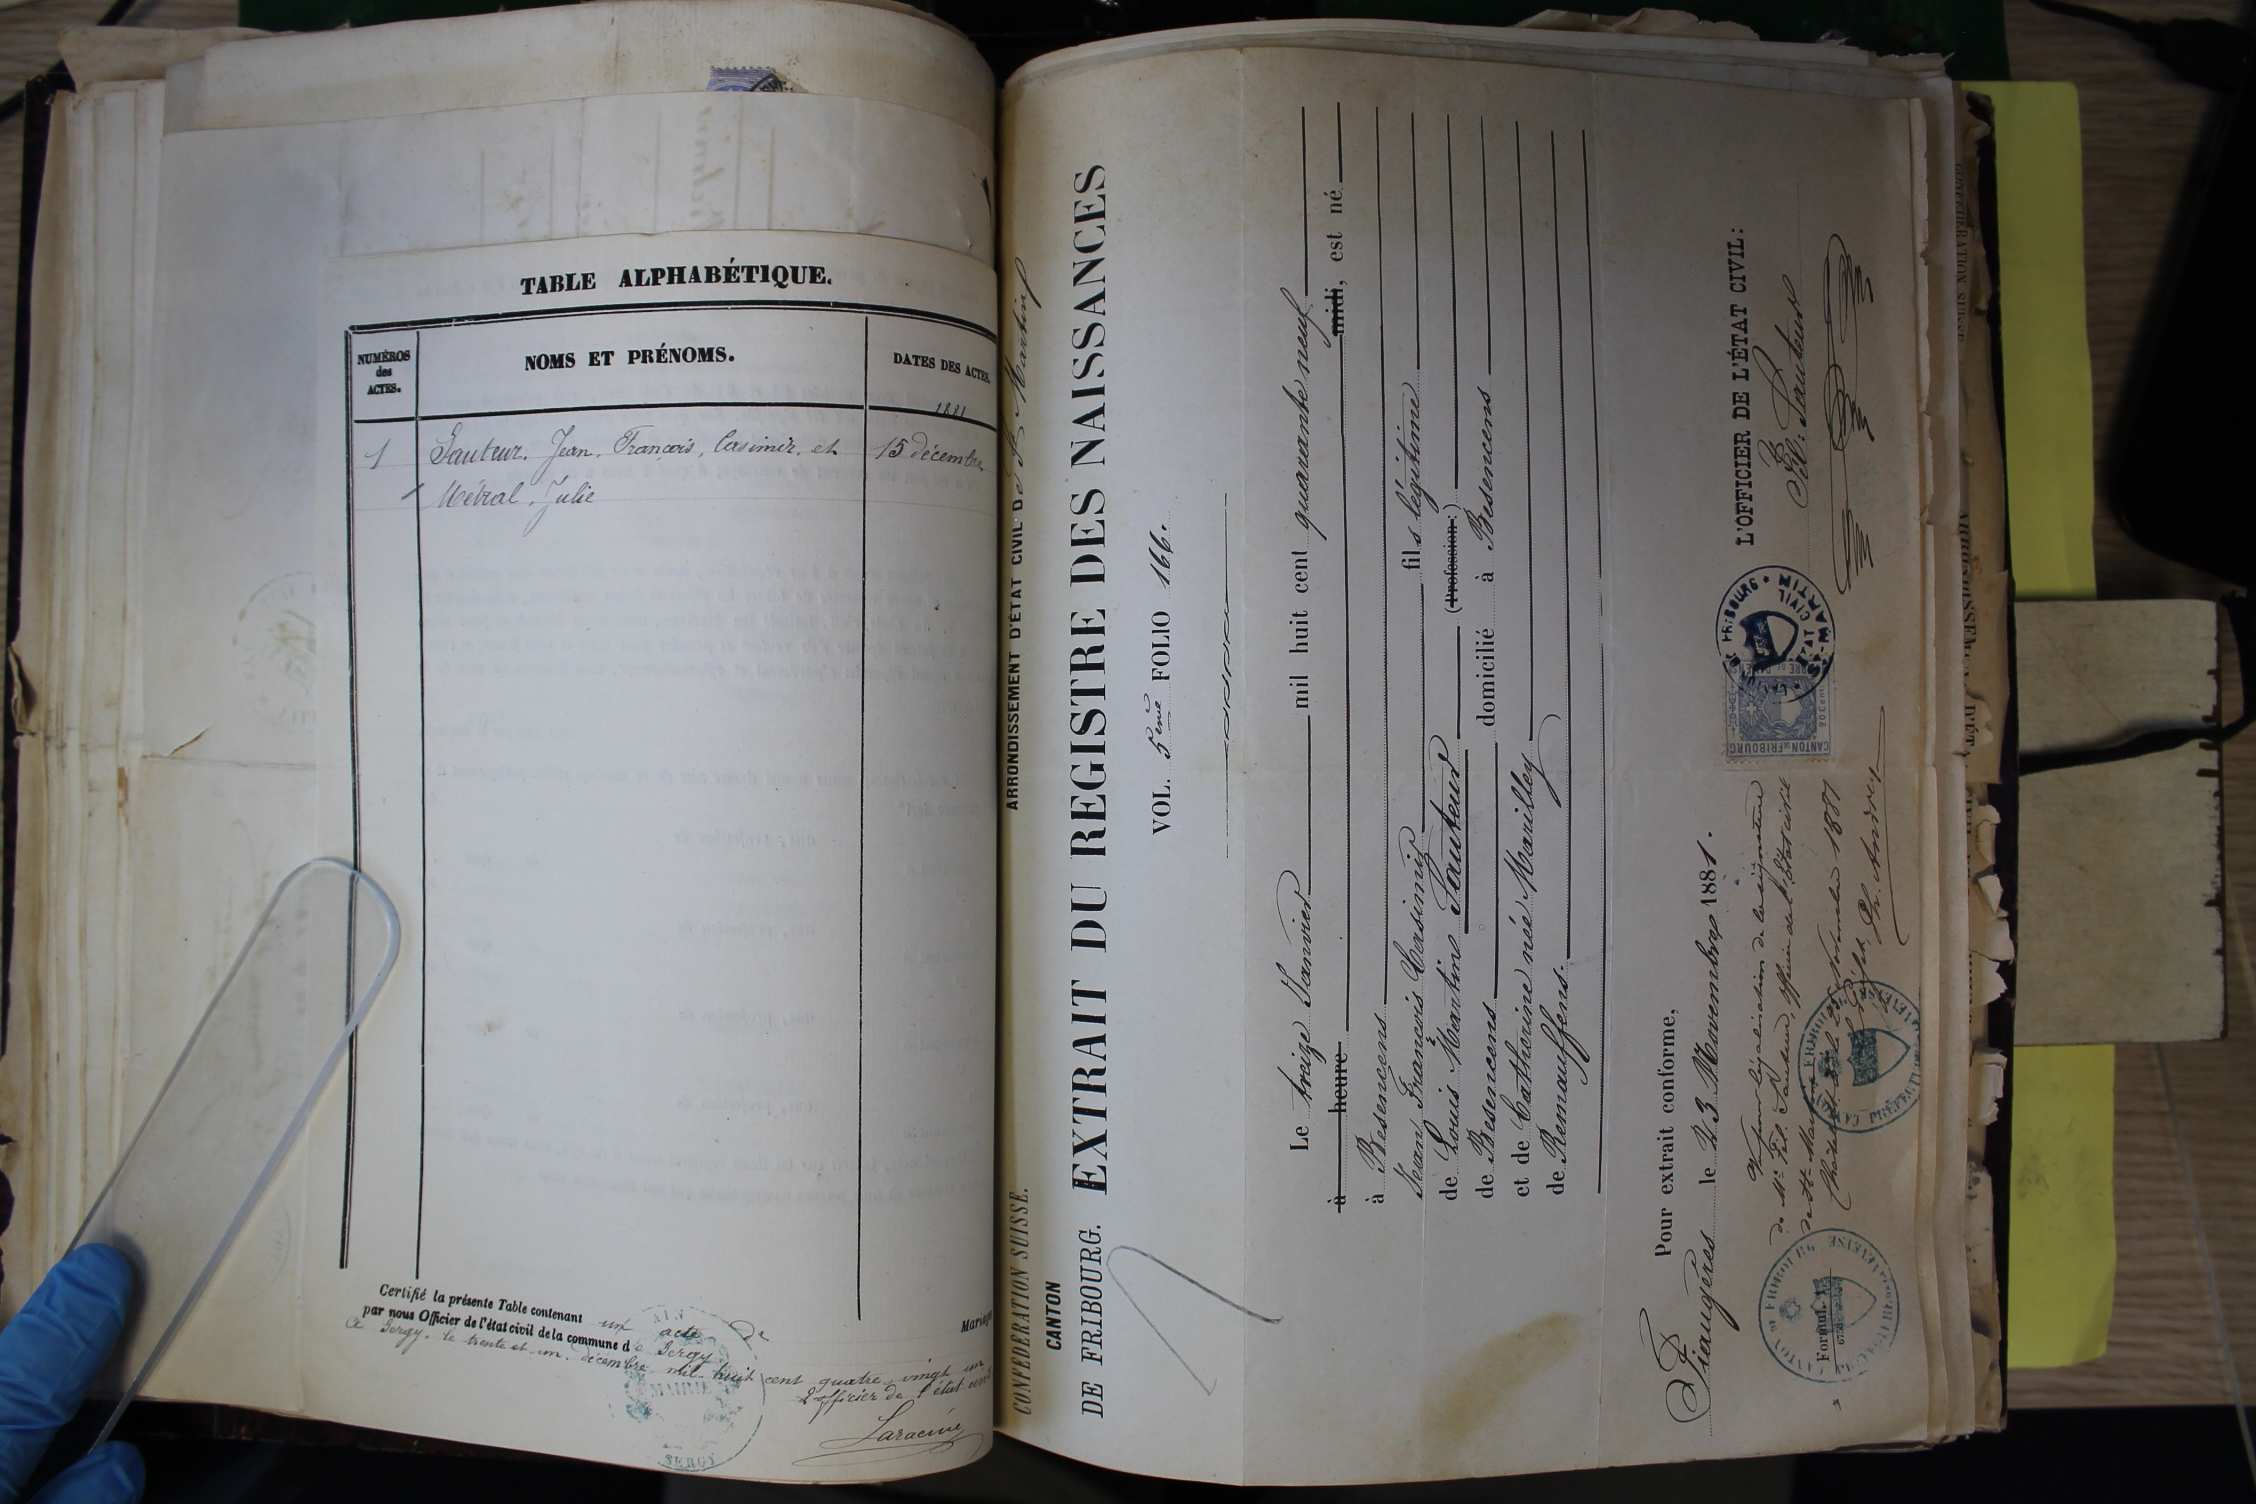 TABLE ALPHABÉTIQUE.
NUMÉROS des ACTES.
NOMS ET PRÉNOMS.
DATES DES ACTES.
1881
1 Sauteur, Jean, François, Casimir, et 15 décembre
Métral, Julie
Certifié la présente Table contenant un acte
par nous Officier de l'état civil de la commune de Sergy
A Sergy, le trente et un décembre mil huit cent quatre vingt un
L'officier de l'état civil
Laracine
MAIRIE
SERGY
Mariages
CONFÉDÉRATION SUISSE.
CANTON
DE FRIBOURG.
ARRONDISSEMENT D'ÉTAT CIVIL DE St Martin
EXTRAIT DU REGISTRE DES NAISSANCES
VOL. 5eme FOLIO 166.
Le treize Janvier mil huit cent quarante neuf
à heure midi, est né
à Besencens
Jean François Casimir fils légitime
de Louis Martin Sauteur (Profession:)
de Besencens domicilié à Besencens
et de Catherine née Marilley
de Remauffens.
Pour extrait conforme,
Fiaugères le 23 Novembre 1881.
L'OFFICIER DE L'ÉTAT CIVIL:
Fél: Sauteur
CANTON DE FRIBOURG
20 Cent
FRIBOURG
ÉTAT CIVIL
ST-MARTIN
Vu pour légalisation de la signature
de Mr Fél. Sauteur, officier de l'état civil
de St-Martin
Châtel, le 23 Novembre 1881
Le Préfet,
CANTON DE FRIBOURG
PRÉFECTURE
CANTON DE FRIBOURG
Formul.
CONFÉDÉRATION SUISSE